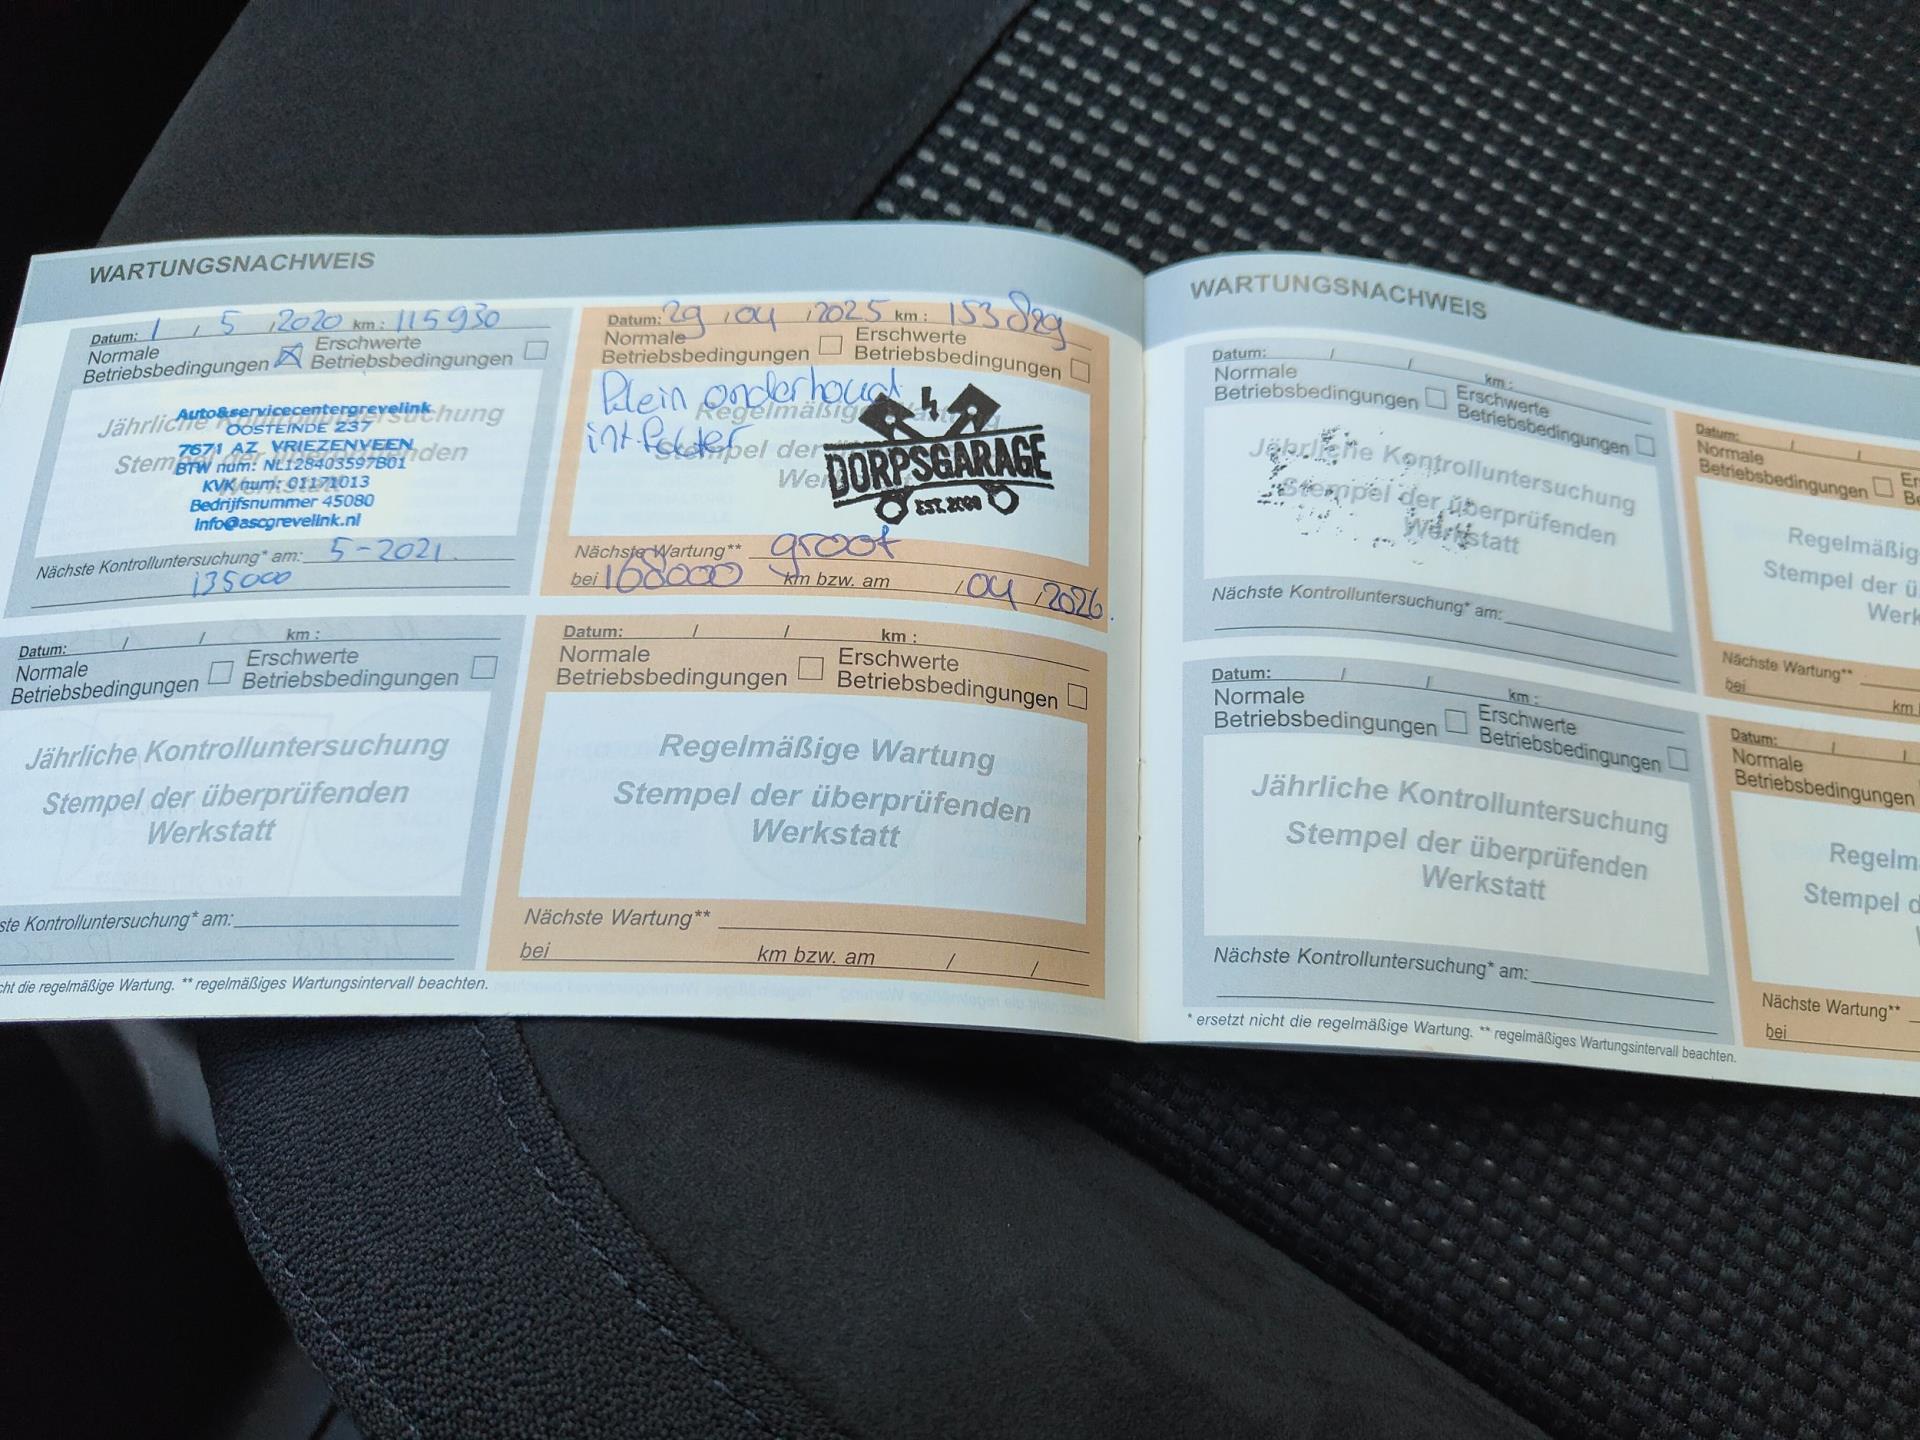 WARTUNGSNACHWEIS
Datum: 1 / 5 / 2020 km : 115930
Normale Betriebsbedingungen
Erschwerte Betriebsbedingungen
Jährliche Kontrolluntersuchung
Stempel der überprüfenden
Werkstatt
Auto&servicecentergrevelink
OOSTEINDE 237
7671 AZ VRIEZENVEEN
BTW num: NL128403597B01
KVK num: 01171013
Bedrijfsnummer 45080
Info@ascgrevelink.nl
Nächste Kontrolluntersuchung* am: 5-2021.
135000
Datum: 29 / 04 / 2025 km : 153829
Normale Betriebsbedingungen
Erschwerte Betriebsbedingungen
Klein onderhoud
int.
Regelmäßige Wartung
Stempel der überprüfenden
Werkstatt
DORPSGARAGE
EST. 2000
Nächste Wartung** groot
bei 168000 km bzw. am / 04 / 2026.
Datum: / / km :
Normale Betriebsbedingungen
Erschwerte Betriebsbedingungen
Jährliche Kontrolluntersuchung
Stempel der überprüfenden
Werkstatt
ste Kontrolluntersuchung* am:
Datum: / / km :
Normale Betriebsbedingungen
Erschwerte Betriebsbedingungen
Regelmäßige Wartung
Stempel der überprüfenden
Werkstatt
Nächste Wartung**
bei km bzw. am / /
cht die regelmäßige Wartung. ** regelmäßiges Wartungsintervall beachten.
WARTUNGSNACHWEIS
Datum: / / km :
Normale Betriebsbedingungen
Erschwerte Betriebsbedingungen
Jährliche Kontrolluntersuchung
Stempel der überprüfenden
Werkstatt
Nächste Kontrolluntersuchung* am:
Datum: / /
Normale Betriebsbedingungen
Er
Be
Regelmäßig
Stempel der ü
Werk
Nächste Wartung**
bei km
Datum: / / km :
Normale Betriebsbedingungen
Erschwerte Betriebsbedingungen
Jährliche Kontrolluntersuchung
Stempel der überprüfenden
Werkstatt
Nächste Kontrolluntersuchung* am:
Datum: / /
Normale Betriebsbedingungen
Regelm
Stempel d
Nächste Wartung**
bei
* ersetzt nicht die regelmäßige Wartung. ** regelmäßiges Wartungsintervall beachten.